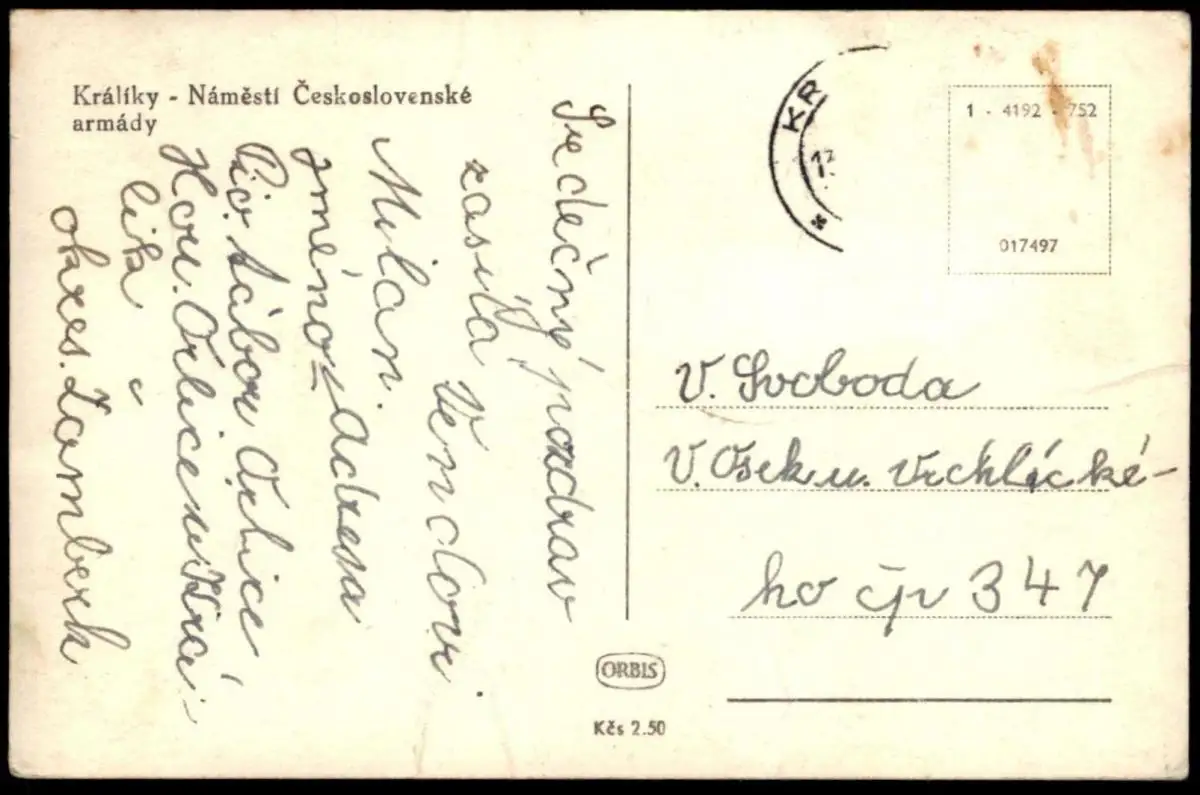 Králíky - Náměstí Československé
armády
Srdečný pozdrav
zasílá Venclovi
Milan.
zméno = adresa
Pio. tábor Orlice
Hor. Orlice u Krá-
lik
okres. Žamberk
KR
1 - 4192 - 752
017497
V. Svoboda
V. Osek u. Vrchlické-
ho čp 347
ORBIS
Kčs 2.50